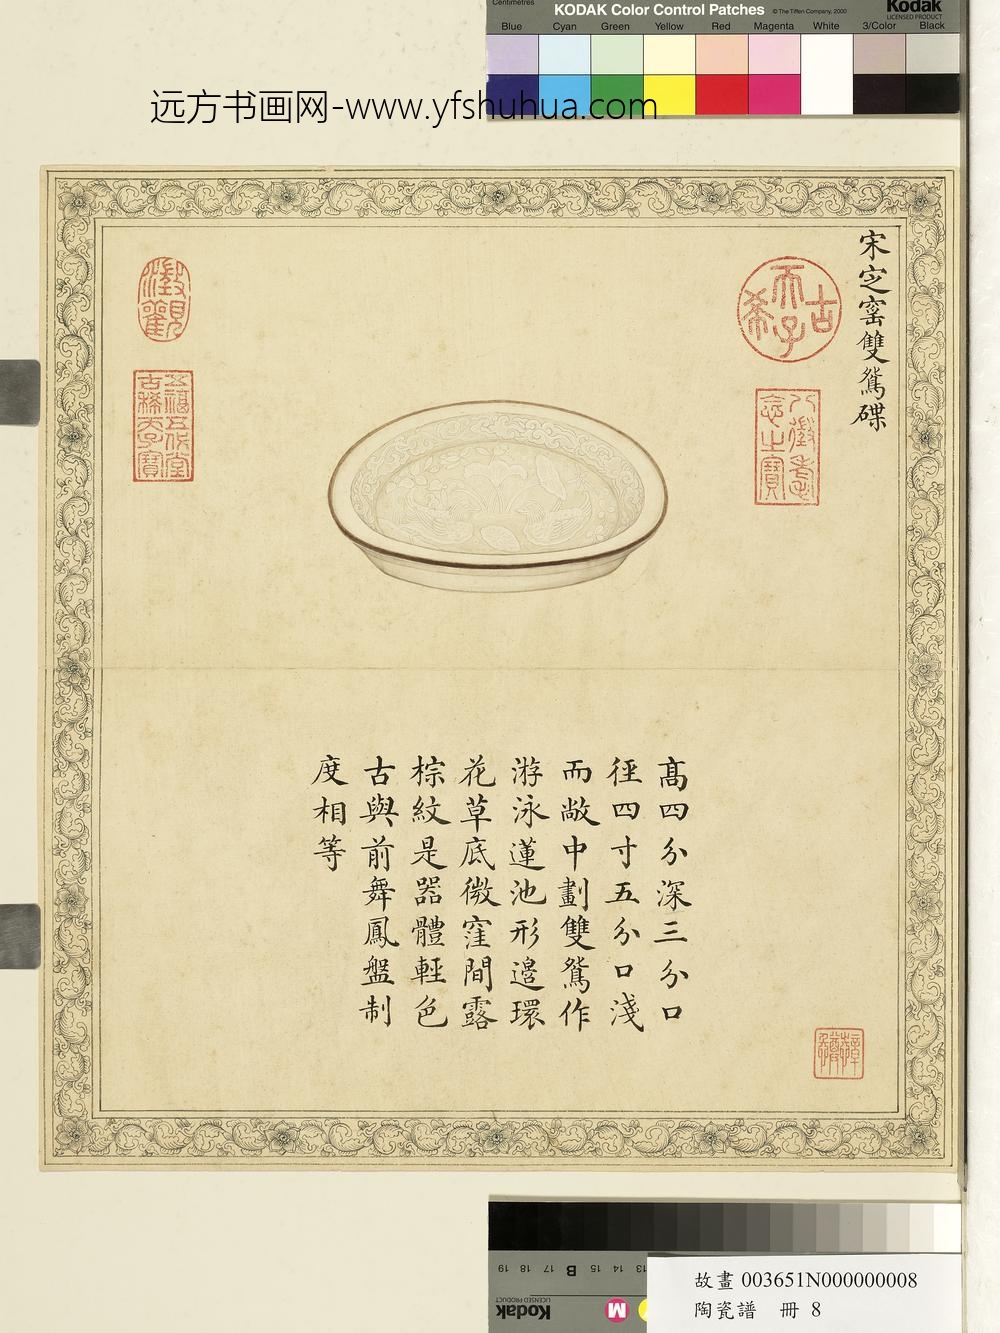 Centimetres
KODAK Color Control Patches © The Tiffen Company, 2000 Kodak
LICENSED PRODUCT
Blue Cyan Green Yellow Red Magenta White 3/Color Black
远方书画网-www.yfshuhua.com
宋定窑雙鴛碟
古希天子
八徵耄念之寶
澂觀
五福五代堂古稀天子寶
高四分深三分口
徑四寸五分口淺
而敞中劃雙鴛作
游泳蓮池形邉環
花草底微窪間露
棕紋是器體輕色
古與前舞鳳盤制
度相等
19 18 17 B 15 14 13
Kodak
LICENSED PRODUCT
M
故畫 003651N000000008
陶瓷譜 冊 8